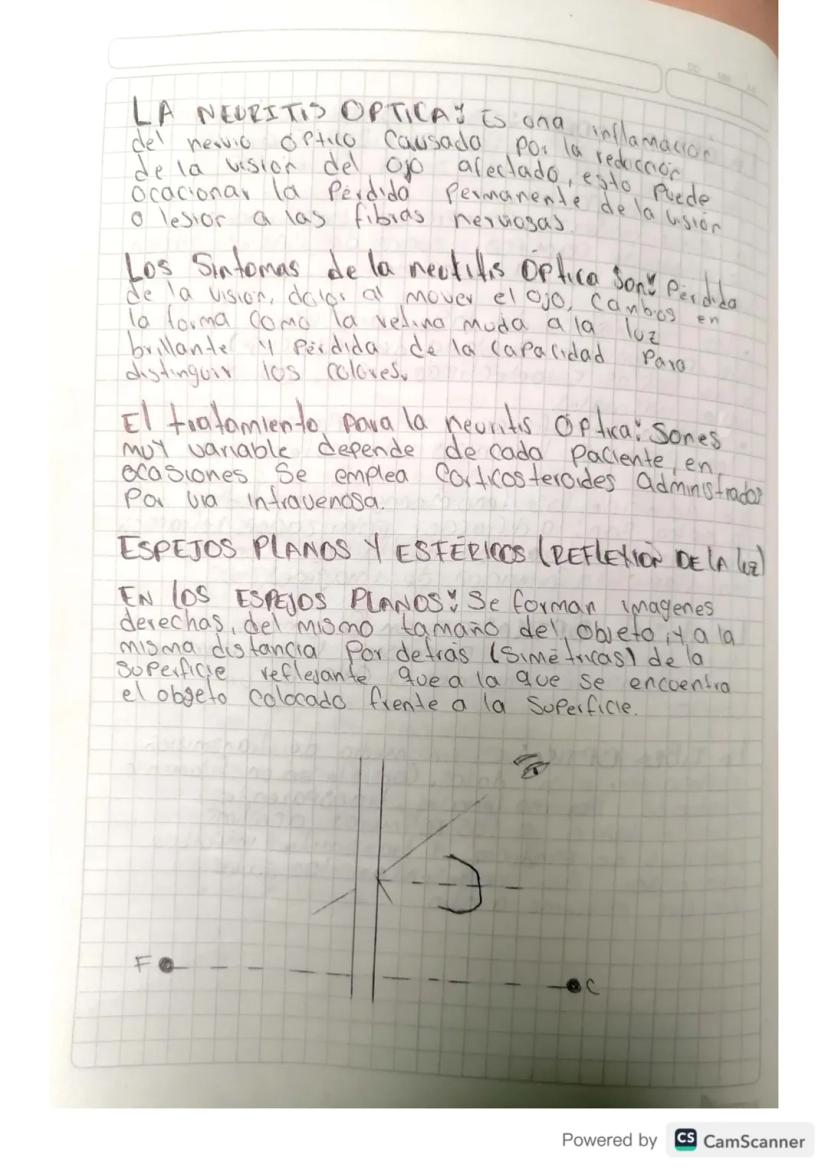 LA NEURITIS OPTICA: Es una inflamacion
del nervio óptico causada por la reducción
de la vision del ojo afectado, esto puede
ocacionar la Perdida Permanente de la visión
o lesior a las fibras nerviosas.
Los Sintomas de la neutitis Óptica Son: Perdida
de la vision, dolor al mover el ojo, Cambios en
la forma como la retina muda a la luz
brillante y Perdida de la capacidad Para
distinguir los colores.
El tratamiento para la neuritis óptica: Sones
muy variable depende de cada Paciente, en
ocasiones Se emplea Corticosteroides administrados
Por via intravenosa.
ESPEJOS PLANOS Y ESFÉRICOS (REFLEXIÓN DE LA luz)
EN LOS ESPEJOS PLANOS: Se forman imagenes
derechas, del mismo tamaño del objeto, y a la
misma distancia Por detrás (Simétricas) de la
Superficie reflejante que a la que se encuentra
el objeto colocado frente a la Superficie.
F
C
Powered by CS CamScanner